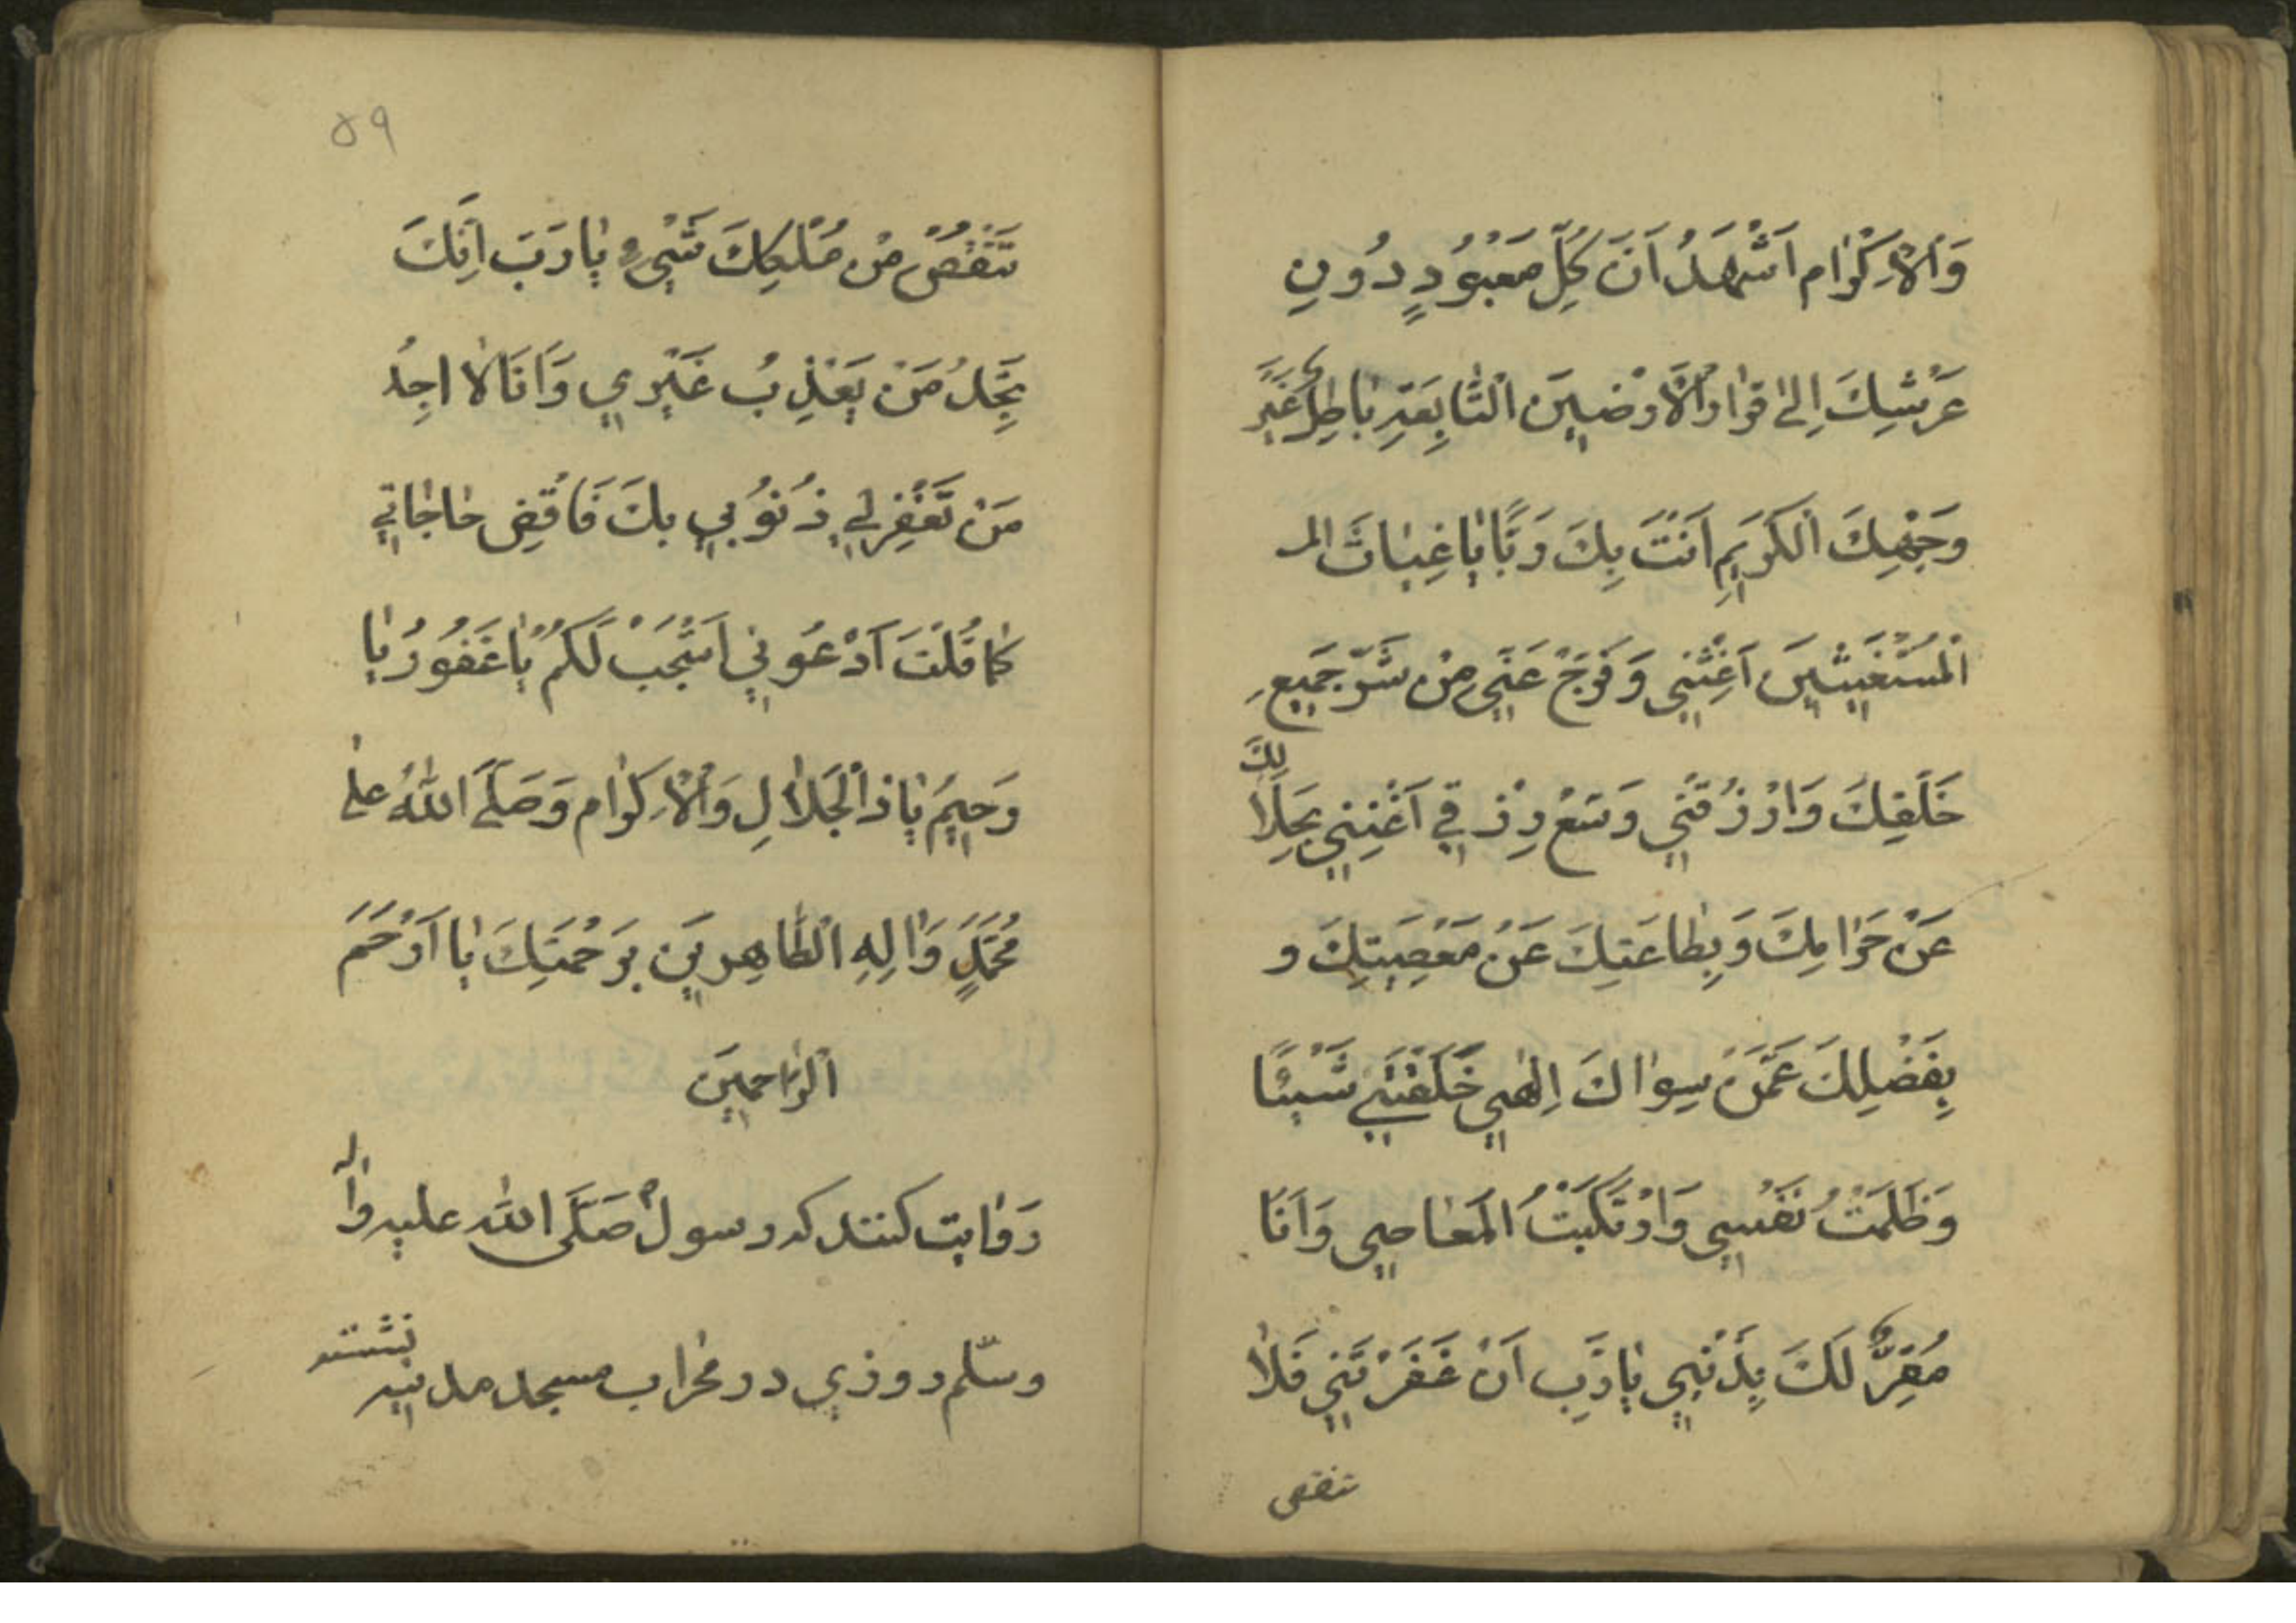 وَالْاِكْرٰام اَشْهَدُ اَنَّ كُلِّ مَعْبُوُدٍ دُونِ
عَرْشِكَ اِلىٰ قرٰارِ الْاَرَضيٖنَ السّٰابِعَةِ بٰاطِلٌ غَيْرَ
وَجْهِكَ الْكَرِيٖمِ اَنْتَ بِكَ رَبًّا يٰا غِيٰاثَ الم
الْمُسْتَغيٖثيٖنَ اَغِثْنيٖ وَ فَرِّجْ عَنّيٖ مِنْ شَرِّ جَميٖعِ
خَلْقِكَ وَارْزُقْنيٖ وَسِّعْ رِزْقيٖ اَغْنِنيٖ بِحَلٰالِكَ
عَنْ حَرٰامِكَ وَ بِطٰاعَتِكَ عَنْ مَعْصِيَتِكَ و
بِفَضْلِكَ عَمَّنْ سِوٰاكَ اِلٰهيٖ خَلَقْتَنيٖ شَيْئًا
وَ ظَلَمْتُ نَفْسيٖ وَارْتَكَبْتُ الْمَعٰاصيٖ وَ اَنَا
مُقِرٌّ لَكَ بِذَنْبيٖ يٰا رَبِّ اَنْ غَفَرْتَنيٖ فَلٰا
تنقص
٥٩
تَنْقُصُ مِنْ مُلْكِكَ شَيْءٍ يٰا رَبَّ اِنَّكَ
تَجِدُ مَنْ يُعَذِبُ غَيْريٖ وَ اَنَا لٰا اجِدُ
مَنْ تَغْفِرْ ليٖ ذُنُوُبيٖ بكَ فَاقْضِ حٰاجٰاتيٖ
كمٰا قُلْتَ اَدْعُونيٖ اَسْتَجِبْ لَكُمْ يٰا غَفُورُ يٰا
رَحيٖمُ يٰا ذَالْجَلٰالِ وَالْاِكرٰام وَ صَلَّى اللّٰهُ علىٰ
مُحَمَّدٍ وَاٰلِهِ الطّٰاهِريٖنَ بِرَحْمَتِكَ يٰا اَرْحَمَ
الرّٰاحِميٖنَ
رَوٰايت كنند كه رسول صَلَّى اللّٰه عليه وآله
وسلّم روزي در محراب مسجد مدينه نشسته